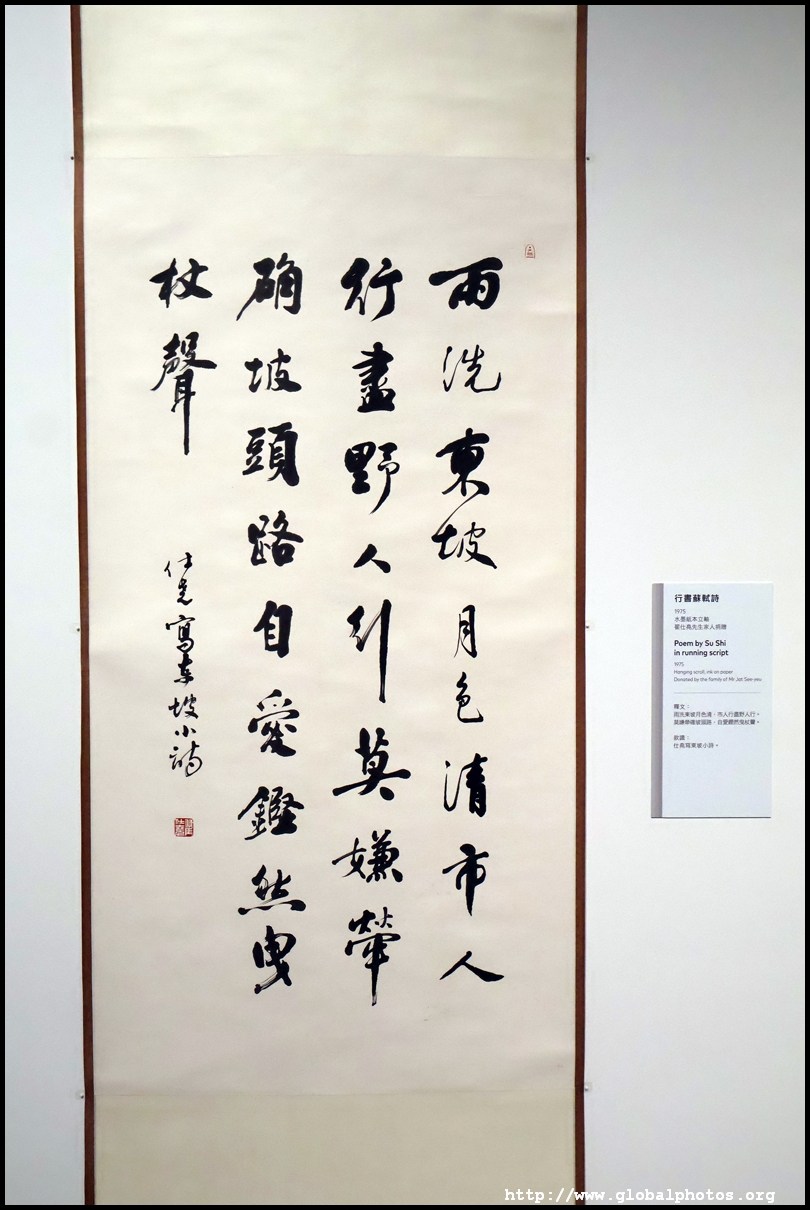 雨洗東坡月色清市人
行盡野人行莫嫌犖
确坡頭路自愛鏗然曳
杖聲
仕尭寫東坡小詩
行書蘇軾詩
1975
水墨紙本立軸
翟仕堯先生家人捐贈
Poem by Su Shi
in running script
1975
Hanging scroll, ink on paper
Donated by the family of Mr Jat See-yeu
釋文：
雨洗東坡月色清，市人行盡野人行。
莫嫌犖确坡頭路，自愛鏗然曳杖聲。
款識：
仕堯寫東坡小詩。
http://www.globalphotos.org